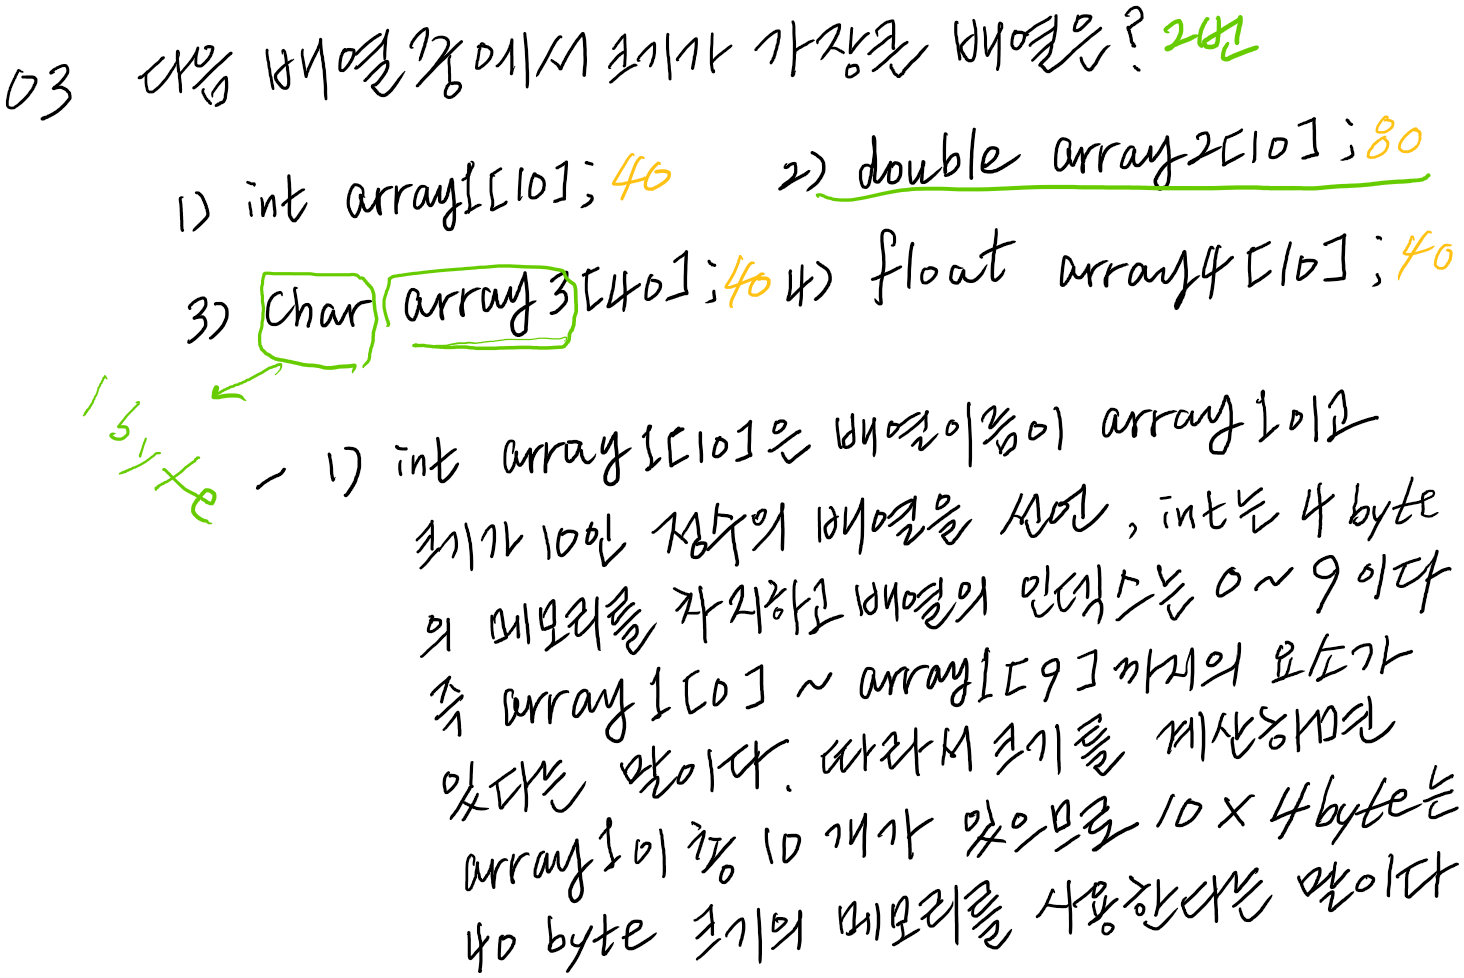 03 다음 배열중에서 크기가 가장큰 배열은? 2번
1) int array1[10]; 40 2) double array2[10]; 80
3) char array3[40]; 40 4) float array4[10]; 40
1byte
- 1) int array1[10]은 배열이름이 array1이고
크기가 10인 정수의 배열을 선언, int는 4 byte
의 메모리를 차지하고 배열의 인덱스는 0 ~ 9 이다
즉 array1[0] ~ array1[9] 까지의 요소가
있다는 말이다. 따라서 크기를 계산하면
array1이 총 10 개가 있으므로 10 × 4byte는
40 byte 크기의 메모리를 사용한다는 말이다